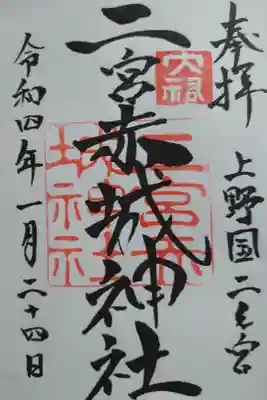 奉拝
上野国二之宮
二宮赤城神社
令和四年一月二十四日